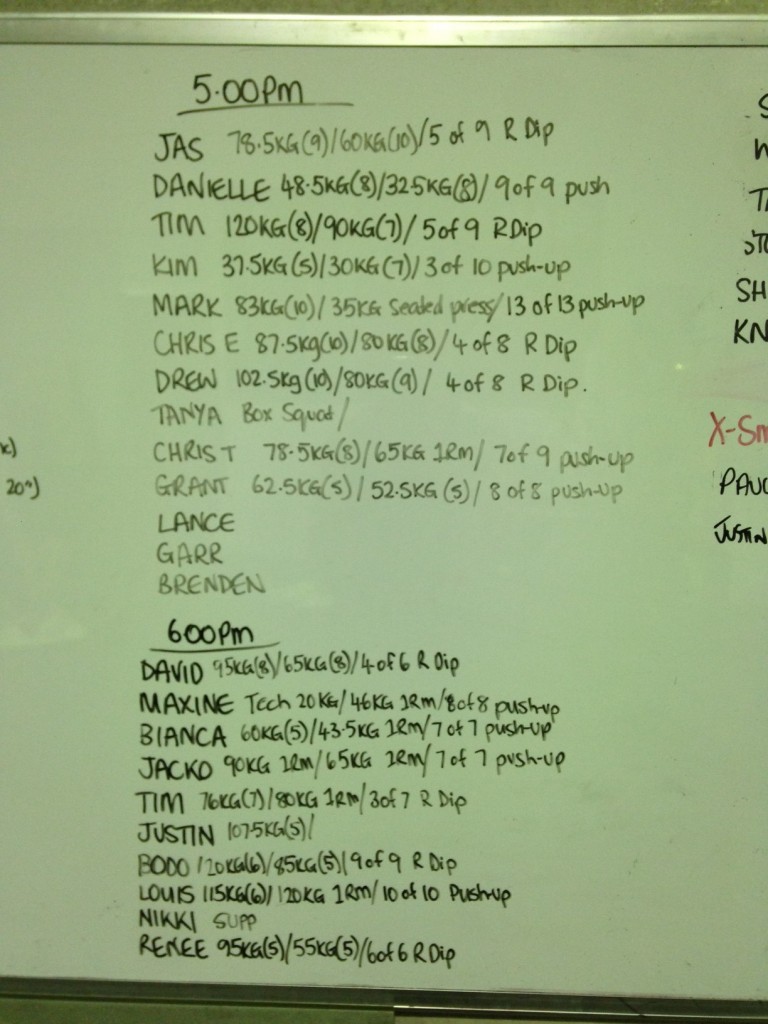 5.00pm
JAS 78.5KG(9)/60KG(10)/5 of 9 R Dip
DANIELLE 48.5KG(8)/32.5KG(8)/9 of 9 push
TIM 120KG(8)/90KG(7)/5 of 9 R Dip
KIM 37.5KG(5)/30KG(7)/3 of 10 push-up
MARK 83KG(10)/35KG Seated press/13 of 13 push-up
CHRIS E 87.5kg(10)/80KG(8)/4 of 8 R Dip
DREW 102.5kg(10)/80KG(9)/ 4 of 8 R Dip.
TANYA Box Squat/
CHRIS T 78.5KG(8)/65KG 1Rm/ 7 of 9 push-up
GRANT 62.5KG(5)/52.5KG(5)/8 of 8 push-up
LANCE
GARR
BRENDEN
6.00pm
DAVID 95KG(8)/65KG(8)/4 of 6 R Dip
MAXINE Tech 20KG/46KG 1Rm/8 of 8 push-up
BIANCA 60KG(5)/43.5KG 1Rm/7 of 7 push-up
JACKO 90KG 1Rm/65KG 1Rm/7 of 7 push-up
TIM 76KG(7)/80KG 1Rm/3 of 7 R Dip
JUSTIN 107.5KG(5)/
BODO 120KG(6)/85KG(5)/9 of 9 R Dip
LOUIS 115KG(6)/120KG 1Rm/10 of 10 Push-up
NIKKI SUPP
RENEE 95KG(5)/55KG(5)/6 of 6 R Dip
20")
SH
KN
X-Sm
JUSTIN